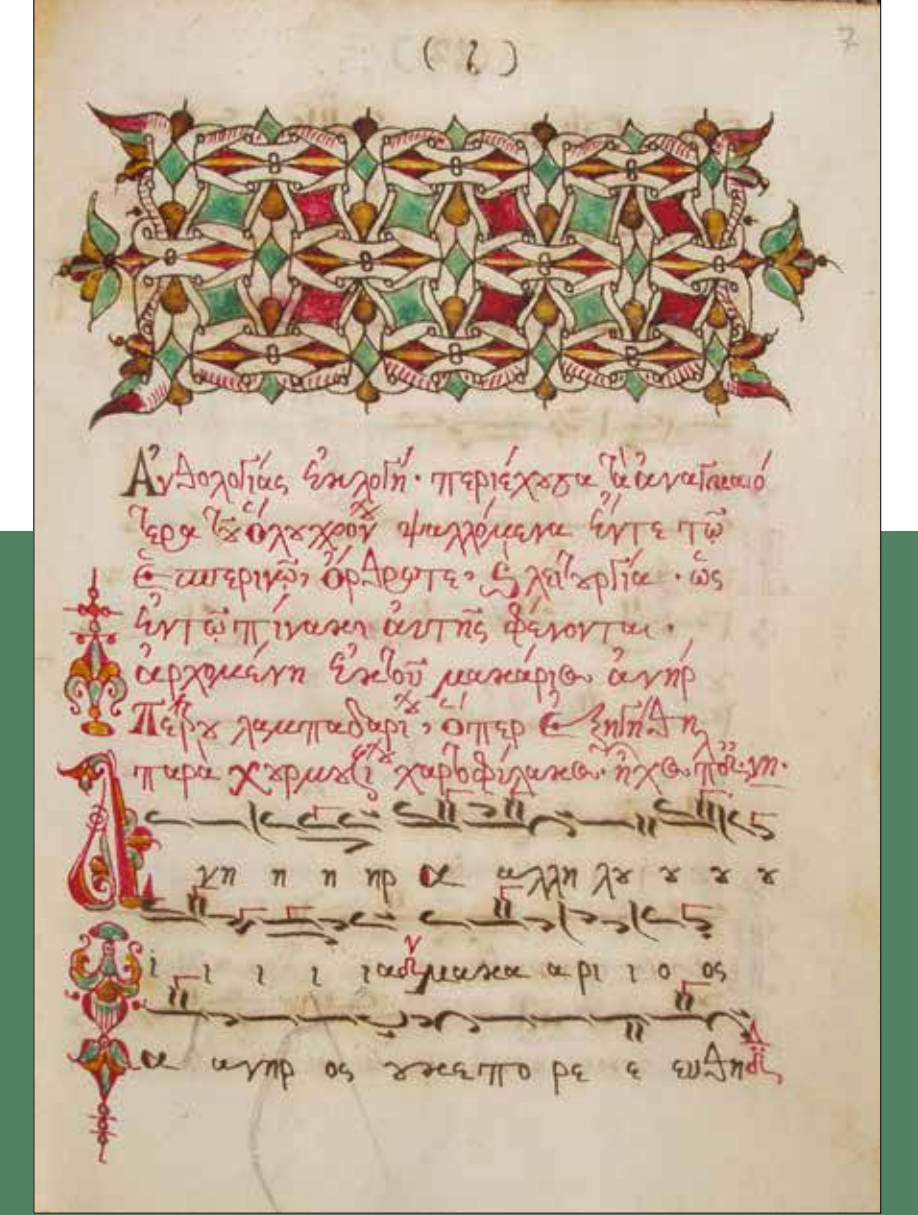 7
Ἀνθολογίας ἐκλογὴ· περιέχουσα τὰ ἀναγκαιό
τερα τοῦ ὁλοχρόνου ψαλλόμενα ἔν τε τῷ
Ἑσπερινῷ, Ὄρθρῳ τε, λειτουργία· ὡς
ἐν τῷ πίνακι αὐτῆς φένονται·
ἀρχομένη ἐκ τοῦ μακάριος ἀνήρ
Πέτρου λαμπαδαρίου, ὅπερ ἐξηγήθη
παρὰ χουρμουζίου χαρτοφύλακος· ἦχος
Α νη η η ηρ α αλλη λου ου ου ου
ι ι ι ι ια μακα α ρι ι ο ος
α α νηρ ος ουκ επο ρε ε ευθη